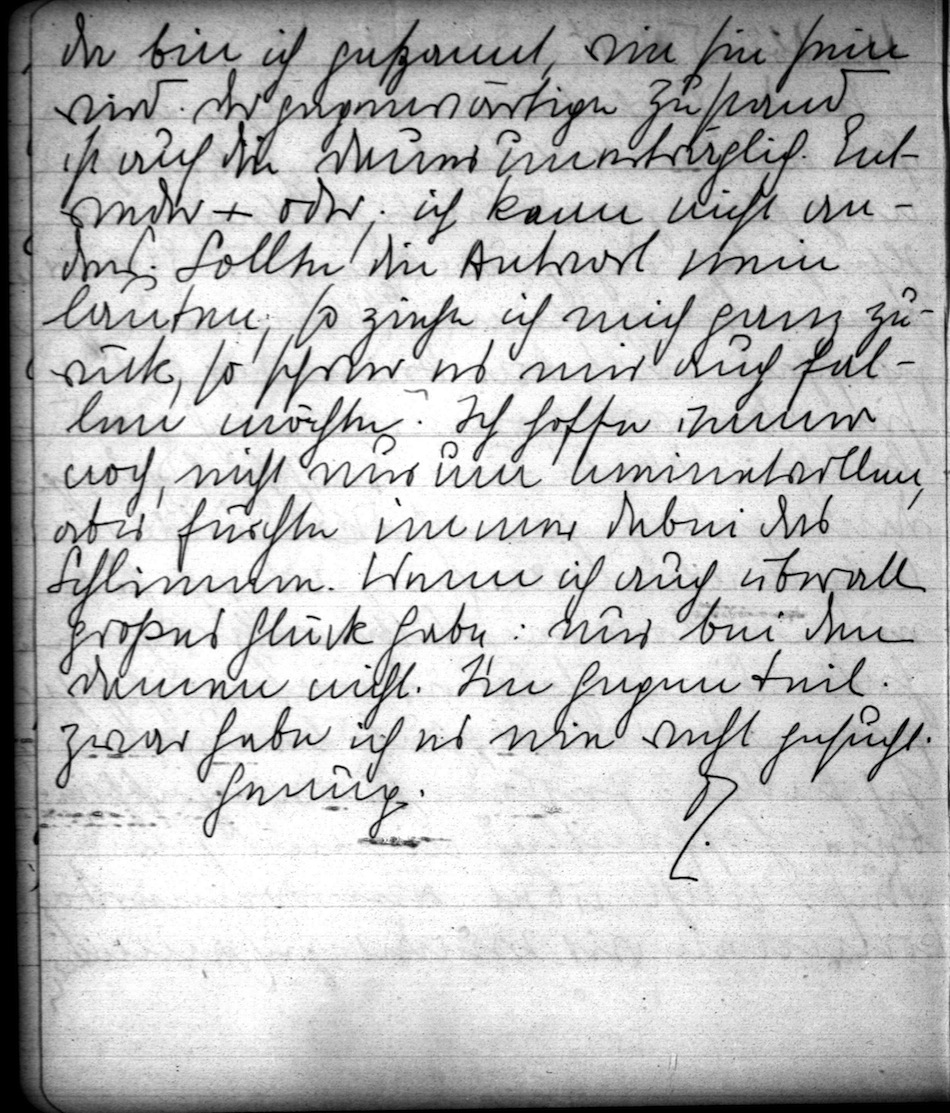 da bin ich gespannt, wie sie sein
wird. Der gegenwärtige Zustand
ist auf die Dauer unerträglich. Ent-
weder + oder; ich kann nicht an-
ders. Sollte die Antwort nein
lauten, so ziehe ich mich ganz zu-
rück, so schwer es mir auch fal-
len möchte. Ich hoffe immer
noch, nicht nur um meinetwillen,
aber fürchte immer dabei das
Schlimme. Wenn ich auch überall
großes Glück habe: nur bei den
Damen nicht. Im Gegenteil.
Zwar habe ich es nie recht gesucht.
Genug.